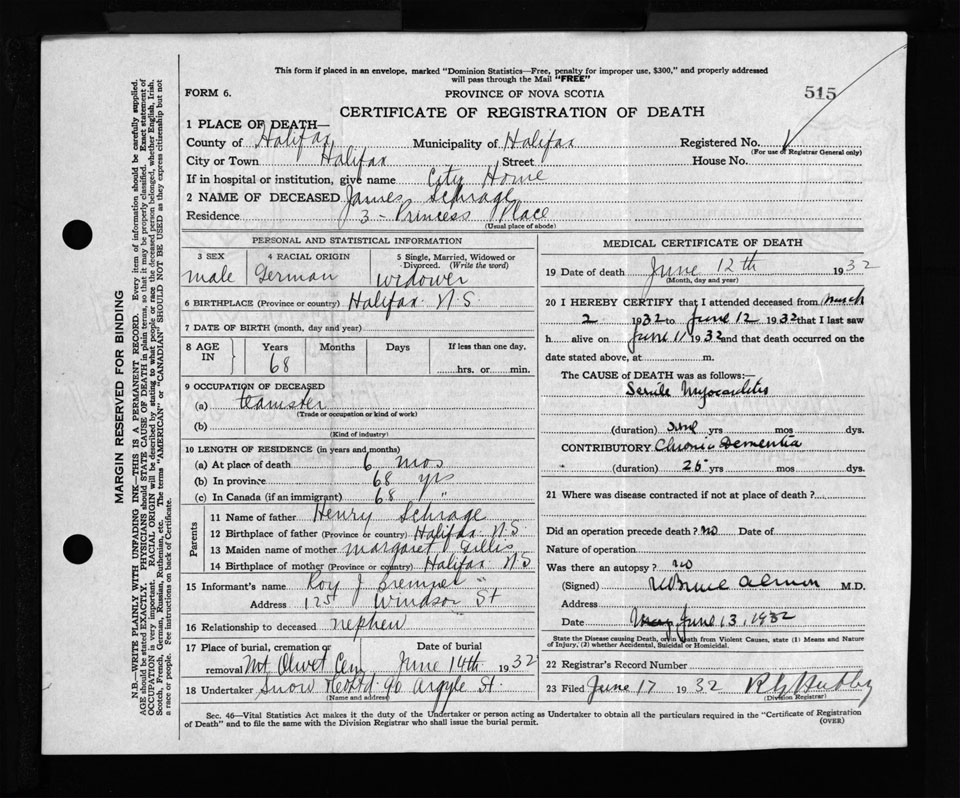 This form if placed in an envelope, marked "Dominion Statistics—Free, penalty for improper use, $300," and properly addressed
will pass through the Mail "FREE"
FORM 6.
PROVINCE OF NOVA SCOTIA
515
CERTIFICATE OF REGISTRATION OF DEATH
1 PLACE OF DEATH—
County of Halifax Municipality of Halifax Registered No.
(For use of Registrar General only)
City or Town Halifax Street House No.
If in hospital or institution, give name City Home
2 NAME OF DECEASED James Schrage
Residence 3 - Princess Place
(Usual place of abode)
PERSONAL AND STATISTICAL INFORMATION
3 SEX 4 RACIAL ORIGIN 5 Single, Married, Widowed or
Divorced. (Write the word)
male German widower
6 BIRTHPLACE (Province or country) Halifax N.S.
7 DATE OF BIRTH (month, day and year)
8 AGE IN Years Months Days If less than one day,
68 hrs. or min.
9 OCCUPATION OF DECEASED
(a) teamster
(Trade or occupation or kind of work)
(b)
(Kind of industry)
10 LENGTH OF RESIDENCE (in years and months)
(a) At place of death 6 mos
(b) In province 68 yrs
(c) In Canada (if an immigrant) 68 "
Parents
11 Name of father Henry Schrage
12 Birthplace of father (Province or country) Halifax N.S
13 Maiden name of mother Margaret Gillis
14 Birthplace of mother (Province or country) Halifax N.S
15 Informant's name Roy J Bremner
Address Windsor St
16 Relationship to deceased nephew
17 Place of burial, cremation or Date of burial
removal Mt Olivet Cem June 14th 1932
18 Undertaker Snow & Co Ltd 90 Argyle St
(Name and address)
MEDICAL CERTIFICATE OF DEATH
19 Date of death June 12th 1932
(Month, day and year)
20 I HEREBY CERTIFY that I attended deceased from March
2 1932 to June 12 1932 that I last saw
h alive on June 11 1932 and that death occurred on the
date stated above, at m.
The CAUSE OF DEATH was as follows:—
Senile Myocarditis
(duration) yrs mos dys.
CONTRIBUTORY Chronic Dementia
(duration) 25 yrs mos dys.
21 Where was disease contracted if not at place of death?
Did an operation precede death? no Date of
Nature of operation
Was there an autopsy? no
(Signed) W Bruce Almon M.D.
Address
Date May June 13, 1932
State the Disease causing Death, or in Death from Violent Causes, state (1) Means and Nature
of Injury, (2) whether Accidental, Suicidal or Homicidal.
22 Registrar's Record Number
23 Filed June 17 1932
(Division Registrar)
Sec. 46—Vital Statistics Act makes it the duty of the Undertaker or person acting as Undertaker to obtain all the particulars required in the "Certificate of Registration
of Death" and to file the same with the Division Registrar who shall issue the burial permit.
(OVER)
MARGIN RESERVED FOR BINDING
N.B.—WRITE PLAINLY WITH UNFADING INK—THIS IS A PERMANENT RECORD. Every item of information should be carefully supplied.
AGE should be stated EXACTLY. PHYSICIANS should STATE CAUSE OF DEATH in plain terms, so that it may be properly classified. Exact statement of
OCCUPATION is very important. RACIAL ORIGIN will be described by stating to what people or race the deceased person belonged, whether English, Irish,
Scotch, French, German, Russian, Ruthenian, etc. The terms "AMERICAN" or "CANADIAN" SHOULD NOT BE USED as they express citizenship but not
a race or people. See instructions on back of Certificate.